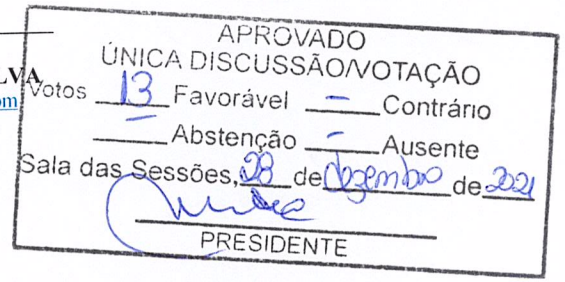 APROVADO
ÚNICA DISCUSSÃO/VOTAÇÃO
LVA
om
Votos 13 Favorável - Contrário
- Abstenção - Ausente
Sala das Sessões, 28 de dezembro de 2021
PRESIDENTE